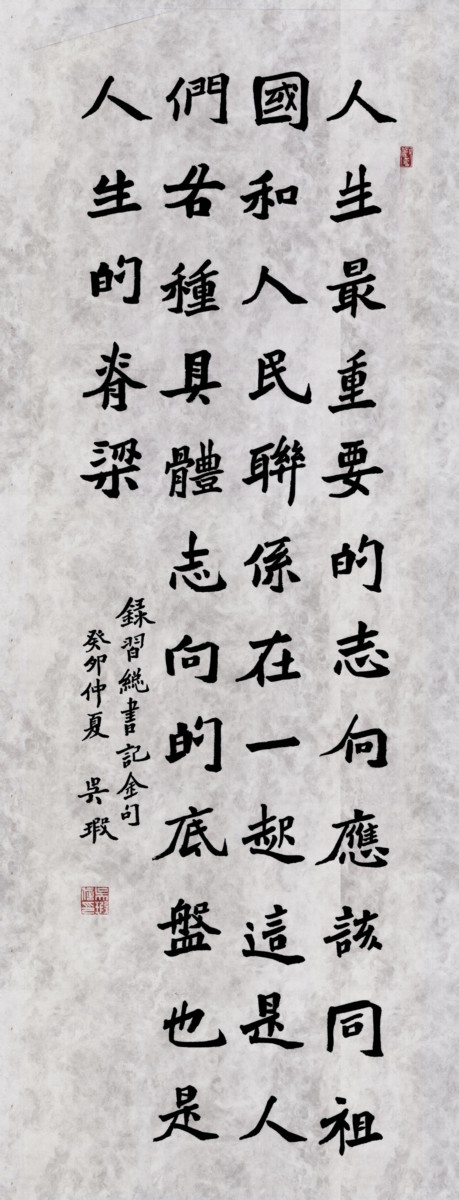 人生最重要的志向應該同祖
國和人民聯係在一起這是人
們各種具體志向的底盤也是
人生的脊梁
錄習總書記金句
癸卯仲夏 吳瑕